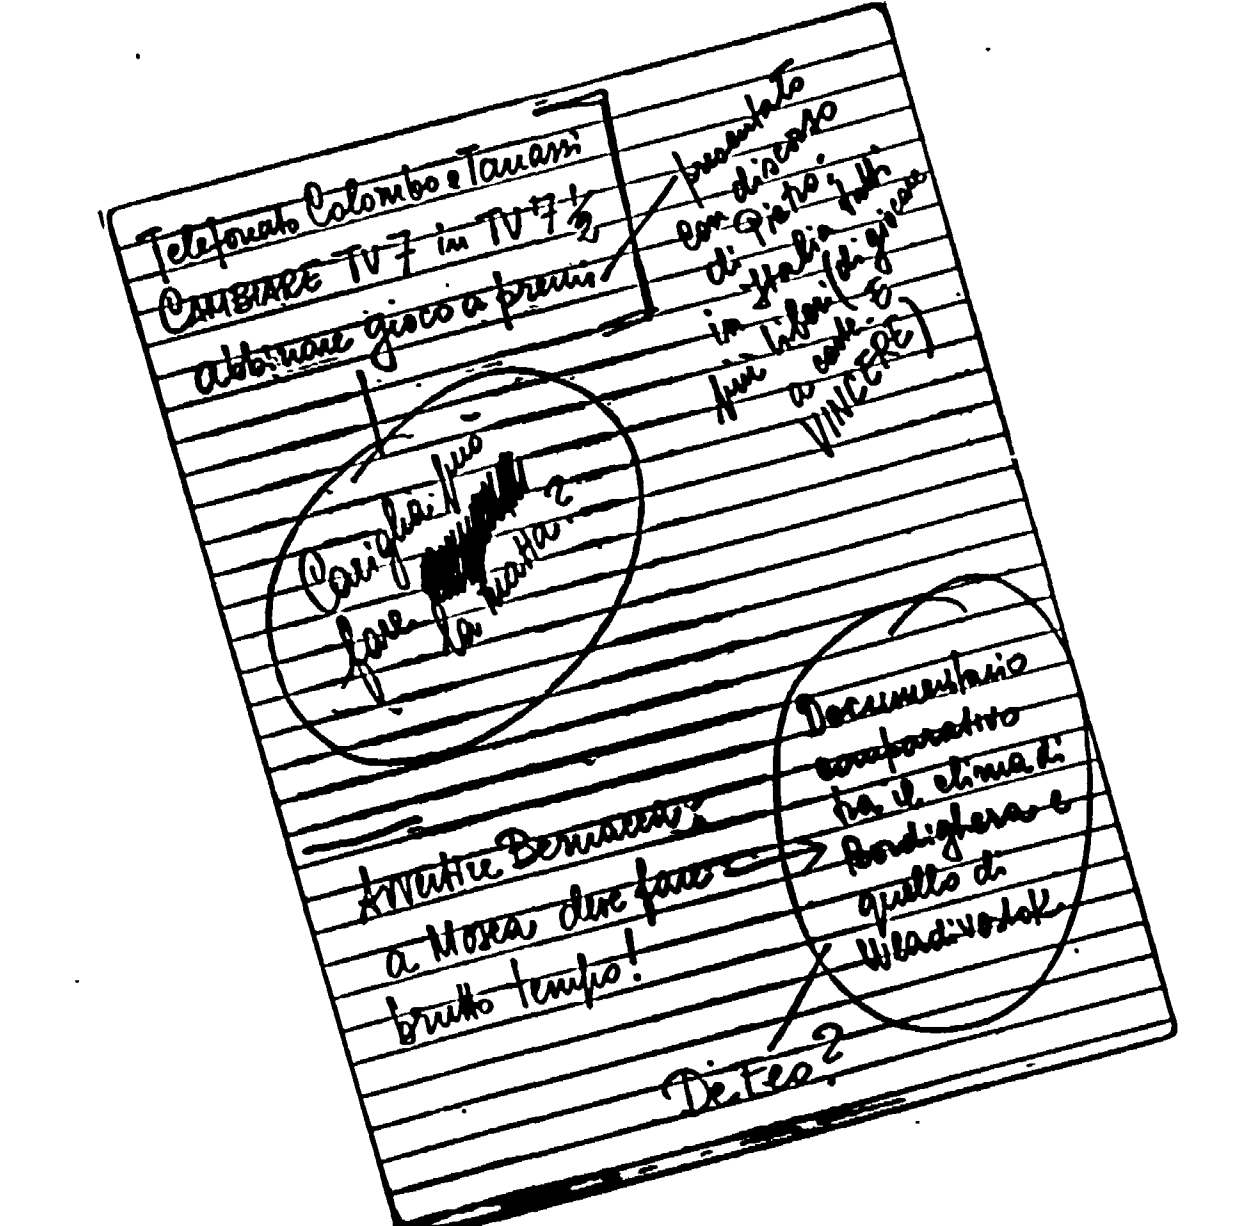 Telefonato Colombo e Tanassi
CAMBIARE TV 7 in TV "7 1/2
abbinare gioco a premi
presentato
con discorso
di Pietro:
in Italia tutti
più liberi (di giocare
a carte. E
VINCERE)
Cariglia può
fare
la matta?
Avvertire Bernacca:
a Mosca deve fare
brutto tempo!
Documentario
comparativo
tra il clima di
Bordighera e
quello di
Wladivostok.
De Feo?